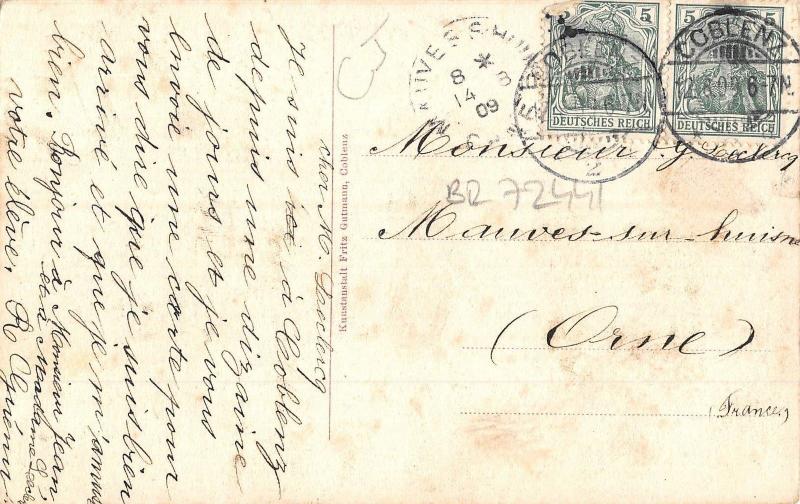 cher M. Leclercq
Je suis ici à Coblenz
depuis une dizaine
de jours et je vous
envoie une carte pour
vous dire que je suis bien
arrivé et que je m'amuse
bien. Bonjour à Monsieur Jean
et à Madame
votre élève. R Guérin
Kunstanstalt Fritz Gutmann, Coblenz
CJ
MAUVES S HUISNE
8 * 8
14
09
5
DEUTSCHES REICH
COBLENZ
2
5
DEUTSCHES REICH
COBLENZ
12.8.09. 6-7N.
Monsieur G. Leclercq
BR 72441
Mauves-sur-huisne
(Orne)
(France)